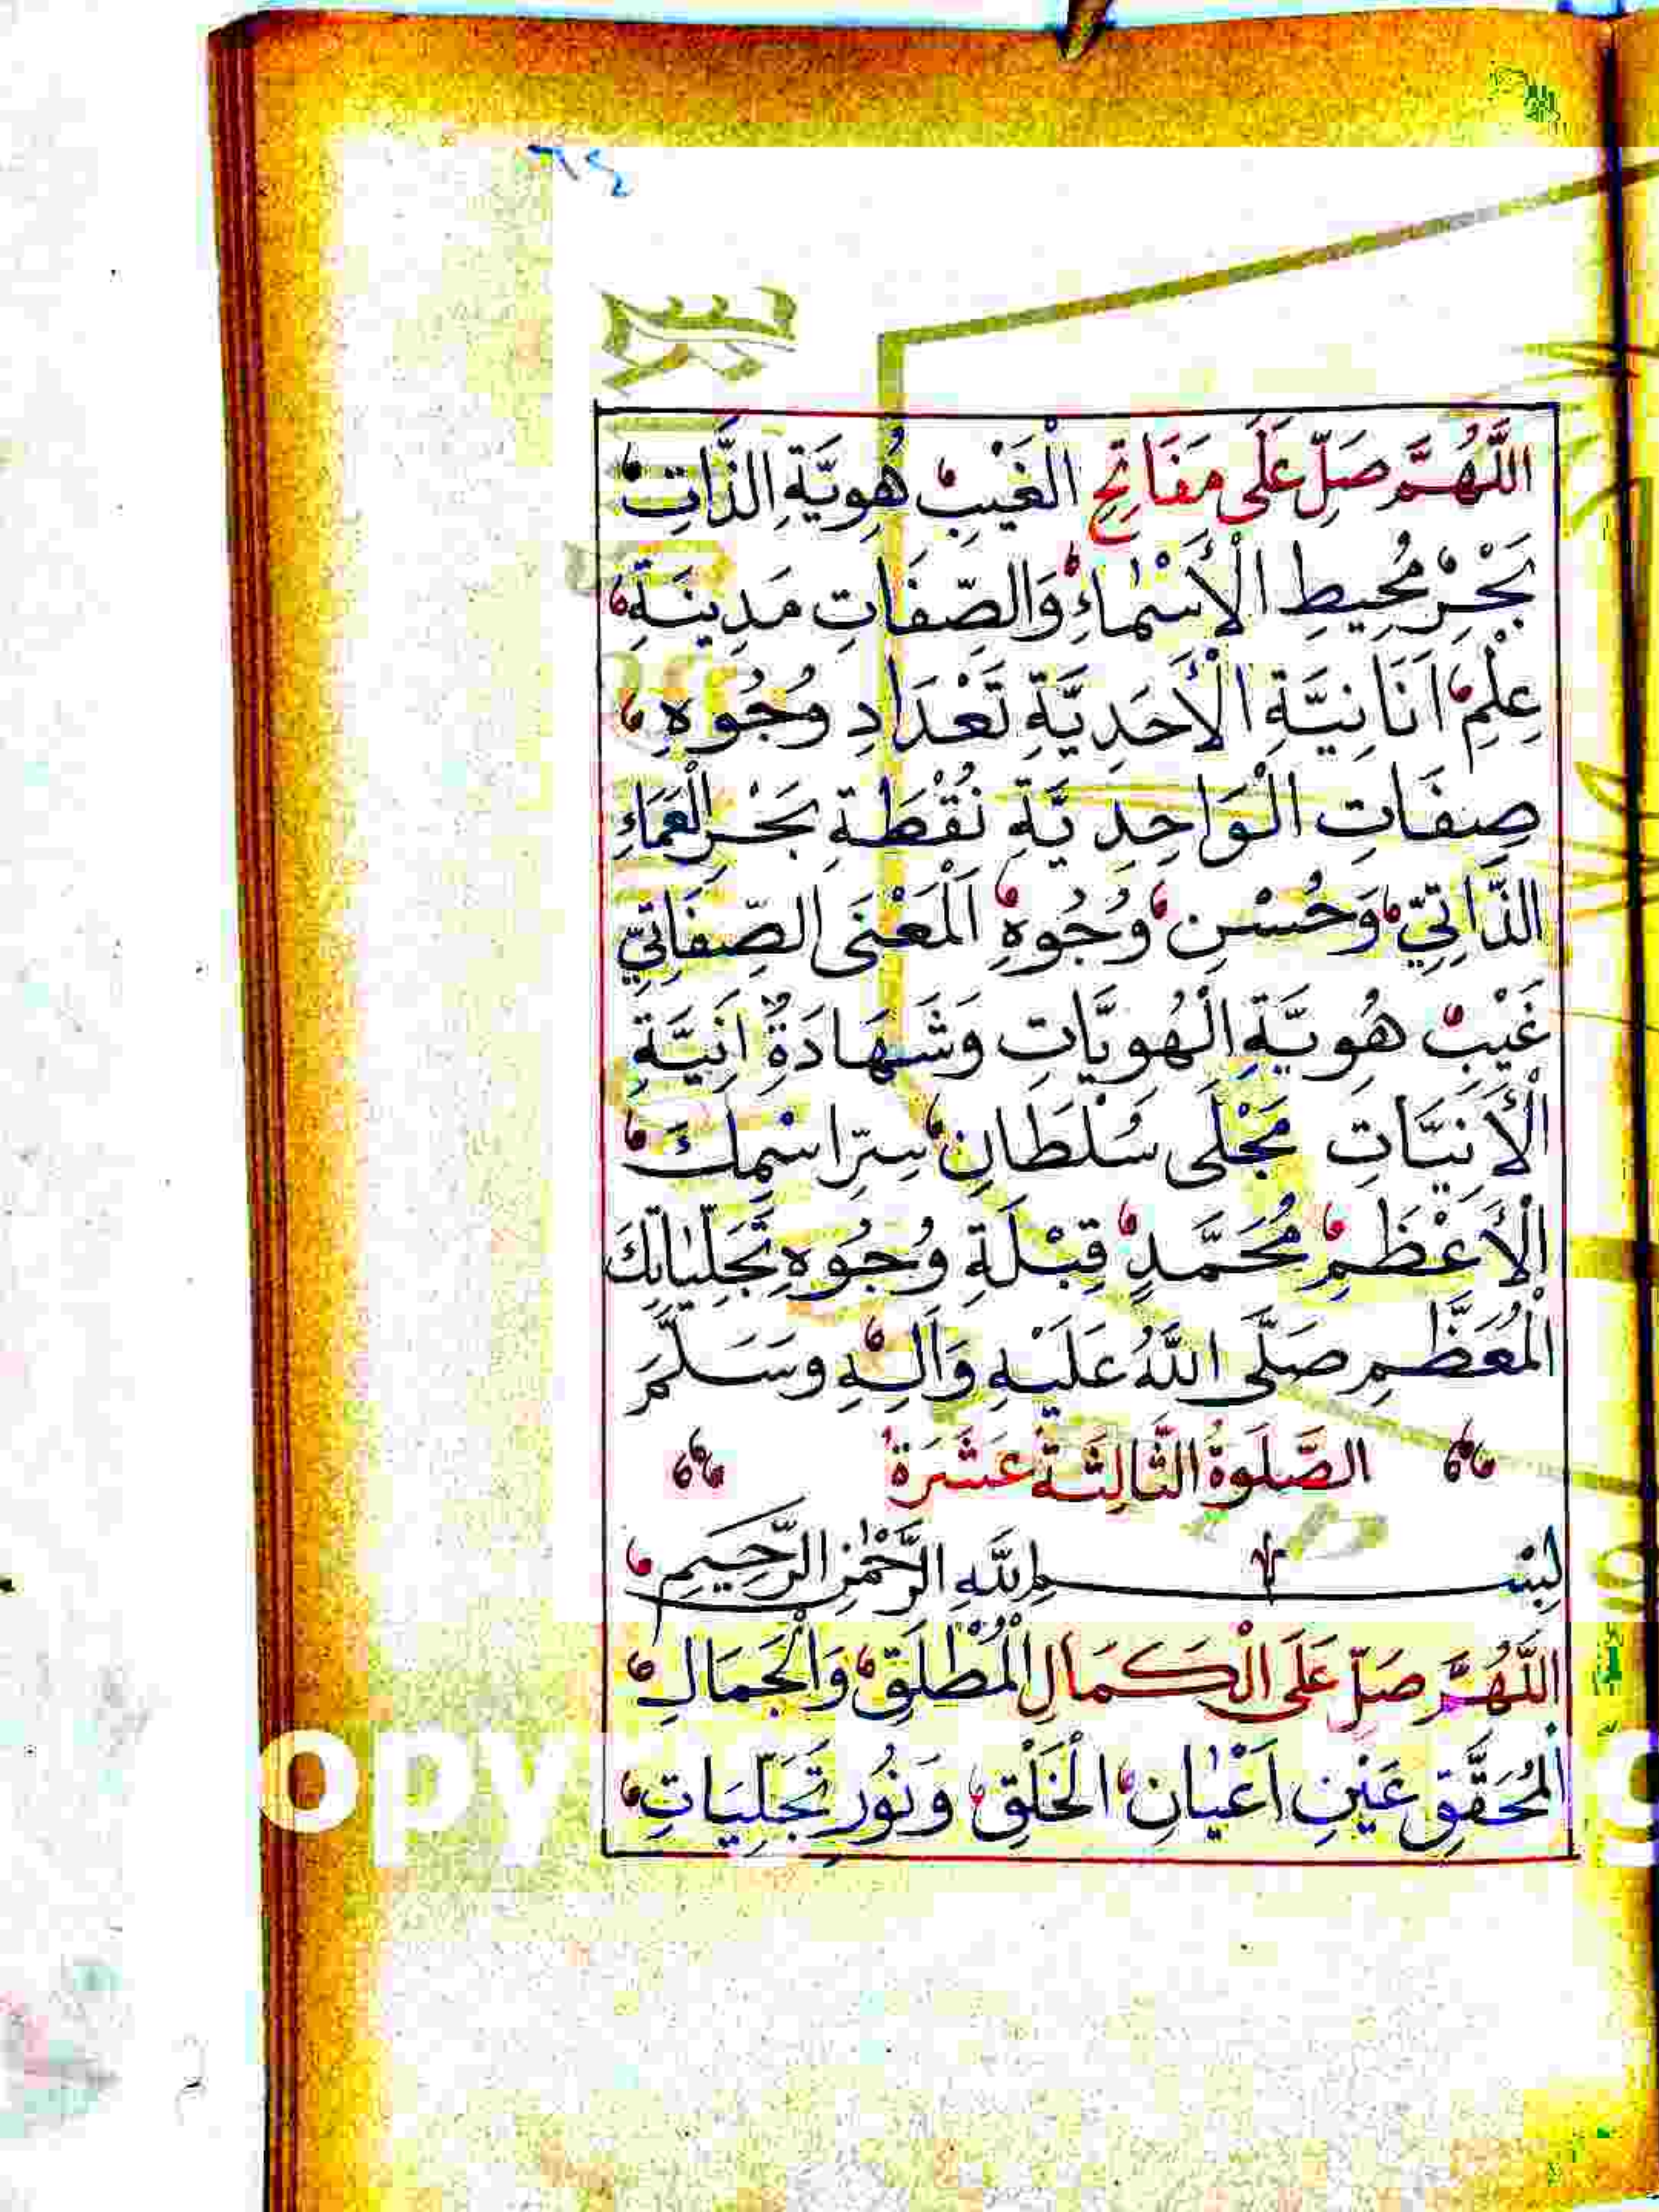 اللَّهُمَّ صَلِّ عَلَى مَفَاتِحِ الْغَيْبِ هُوِيَّةِ الذَّاتِ
بَحْرِ مُحِيطِ الْأَسْمَاءِ وَالصِّفَاتِ مَدِينَةِ
عِلْمِ اَنَانِيَّةِ الْأَحَدِيَّةِ تَعْدَادِ وُجُوهِ
صِفَاتِ الْوَاحِدِيَّةِ نُقْطَةِ بَحْرِ الْعَمَاءِ
الذَّاتِيِّ وَحُسْنِ وُجُوهِ اَلْمَعْنَى الصِّفَاتِيِّ
غَيْبِ هُوِيَّةِ الْهُوِيَّاتِ وَشَهَادَةِ اَنِيَّةِ
الْأَنِيَّاتِ مَجْلَى سُلْطَانِ سِرِّ اسْمِكَ
الْأَعْظَمِ مُحَمَّدٍ قِبْلَةِ وُجُوهِ تَجَلِّيَاتِكَ
الْمُعَظَّمِ صَلَّى اللَّهُ عَلَيْهِ وَآلِهِ وَسَلَّمَ
الصَّلَوةُ الثَّالِثَةُ عَشَرَةَ
بِسْمِ اللَّهِ الرَّحْمٰنِ الرَّحِيمِ
اللَّهُمَّ صَلِّ عَلَى الْكَمَالِ الْمُطْلَقِ وَالْجَمَالِ
الْمُحَقَّقِ عَيْنِ اَعْيَانِ الْخَلْقِ وَنُورِ تَجَلِّيَاتِ
opy